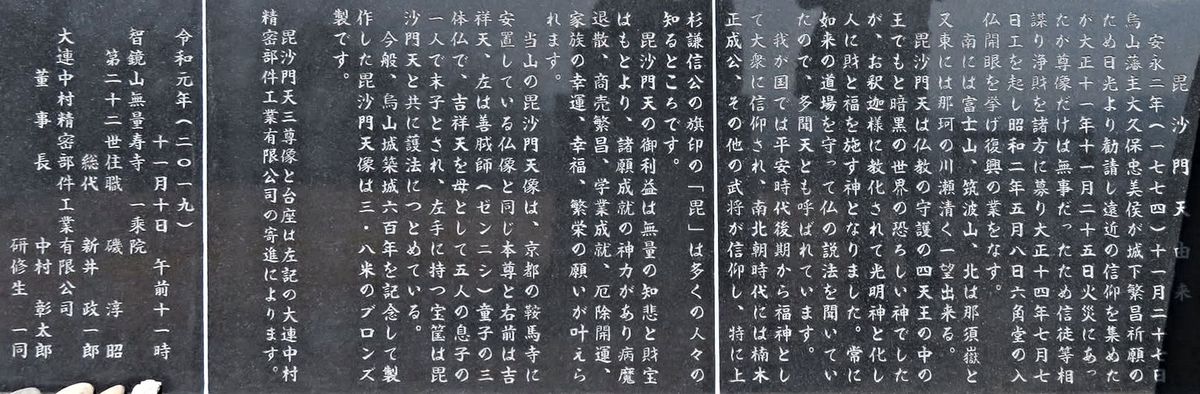 毘沙門天由来
安永二年(一七七四)十一月二十七日
烏山藩主大久保忠美侯が城下繁昌祈願の
ため日光より勧請し遠近の信仰を集めた
が大正十一年十二月二十五日火災にあっ
たが尊像だけは無事だったため信徒等相
謀り浄財を諸方に募り大正十四年七月七
日工を起し昭和二年五月八日六角堂の入
仏開眼を挙げ復興の業をなす。
南には富士山、筑波山、北は那須嶽と
又東には那珂の川瀬清く一望出来る。
毘沙門天は仏教の守護の四天王の中の
王でもと暗黒の世界の恐ろしい神でした
が、お釈迦様に教化されて光明神と化し
人に財と福を施す神となりました。常に
如来の道場を守って仏の説法を聞いてい
たので、多聞天とも呼ばれています。
我か国では平安時代後期から福神とし
て大衆に信仰され、南北朝時代には楠木
正成公、その他の武将が信仰し、特に上
杉謙信公の旗印の「毘」は多くの人々の
知るところです。
毘沙門天の御利益は無量の知悲と財宝
はもとより、諸願成就の神力があり病魔
退散、商売繁昌、学業成就、厄除開運、
家族の幸運、幸福、繁栄の願いが叶えら
れます。
当山の毘沙門天像は、京都の鞍馬寺に
安置している仏像と同じ本尊と右前は吉
祥天、左は善膩師(ゼンニシ)童子の三
体仏で、吉祥天を母として五人の息子の
一人で末子とされ、左手に持つ宝筐は毘
沙門天と共に護法につとめている。
今般、烏山城築城六百年を記念して製
作した毘沙門天像は三・八米のブロンズ
製です。
毘沙門天三尊像と台座は左記の大連中村
精密部件工業有限公司の寄進によります。
令和元年(二〇一九)
十一月十日 午前十一時
智鏡山無量寿寺 一乗院
第二十二世住職 磯 淳昭
総代 新井政一郎
大連中村精密部件工業有限公司
董事長 中村彰太郎
研修生一同